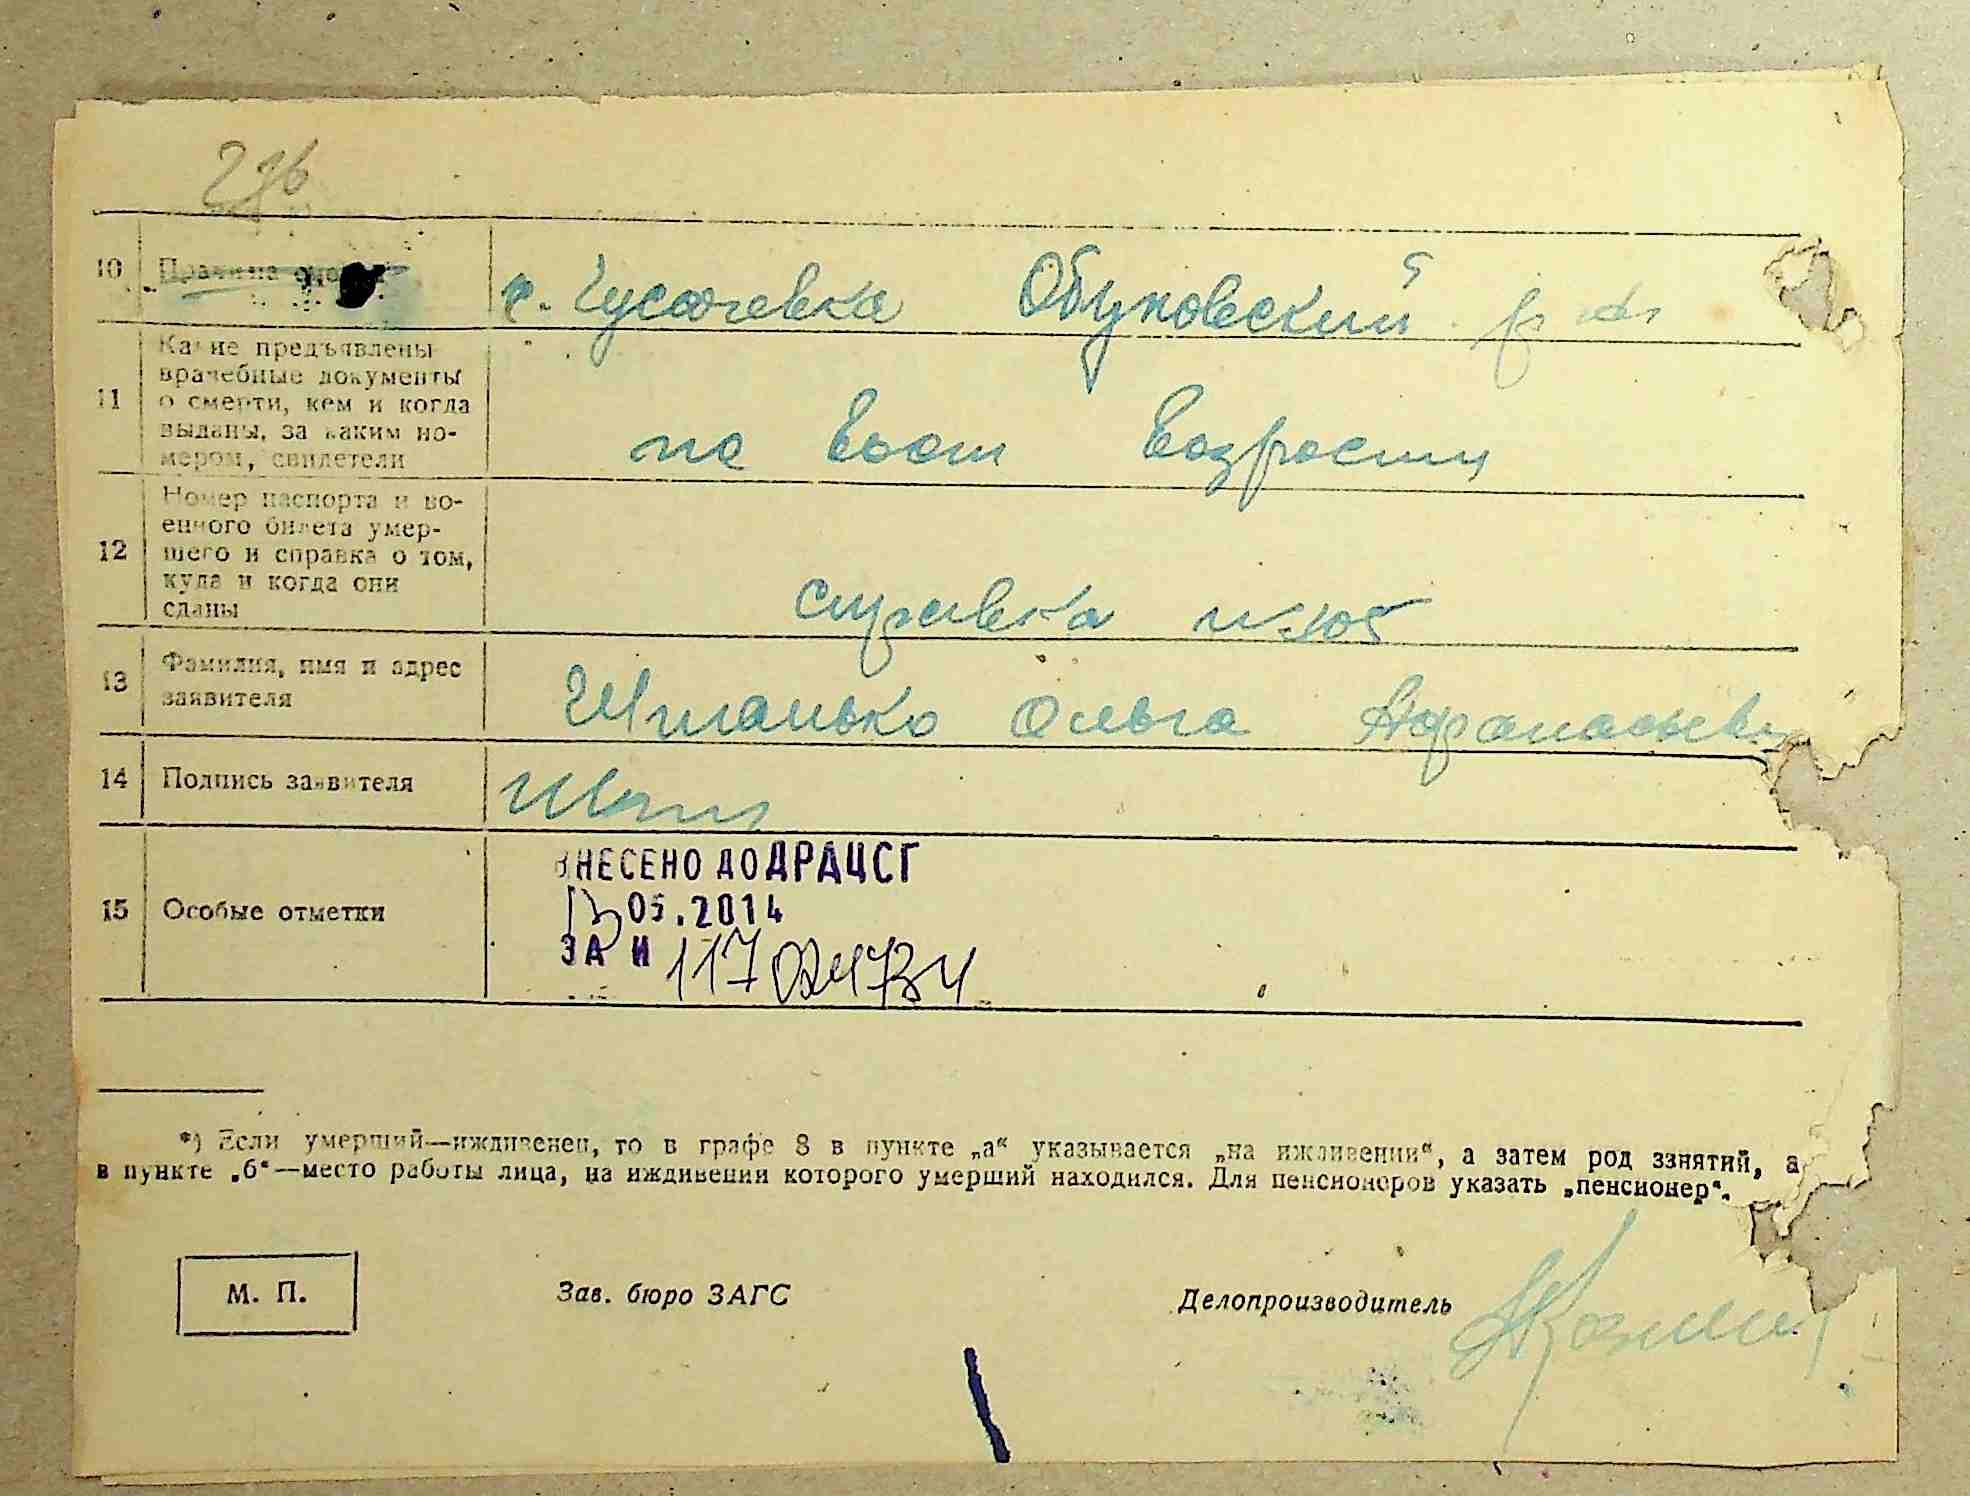 10 Причина смерти
с. Гусачевка Обуховский р-н
11 Какие предъявлены
врачебные документы
о смерти, кем и когда
выданы, за каким но-
мером, свидетели
по возрасту
12 Номер паспорта и во-
енного билета умер-
шего и справка о том,
куда и когда они
сданы
справка № 105
13 Фамилия, имя и адрес
заявителя
Ольга Афанасьевн
14 Подпись заявителя
15 Особые отметки
ВНЕСЕНО ДО ДРАЦСГ
13 05.2014
ЗА №
*) Если умерший—иждивенец, то в графе 8 в пункте „а“ указывается „на иждивении“, а затем род занятий, а
в пункте „б“—место работы лица, на иждивении которого умерший находился. Для пенсионеров указать „пенсионер“.
М. П.
Зав. бюро ЗАГС
Делопроизводитель